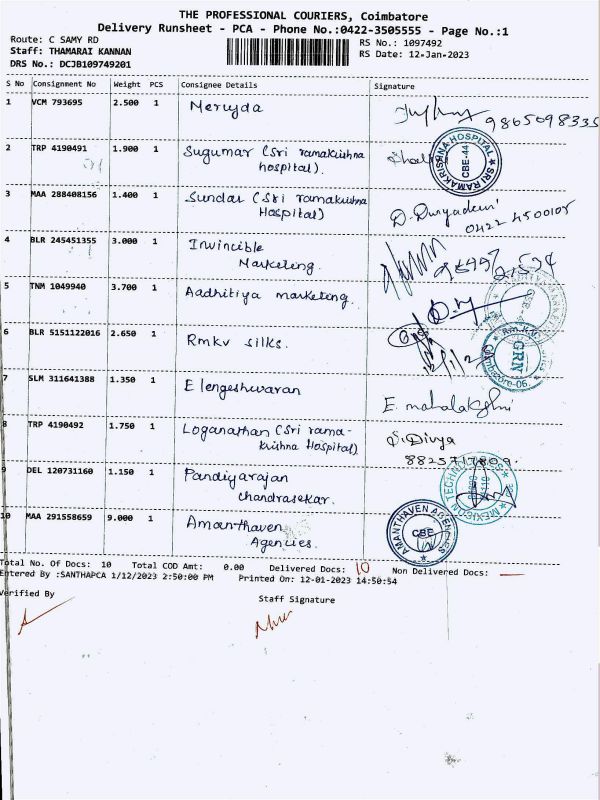 THE PROFESSIONAL COURIERS, Coimbatore
Delivery Runsheet - PCA - Phone No.:0422-3505555 - Page No.:1
Route: C SAMY RD
Staff: THAMARAI KANNAN
DRS No.: DCJB109749201
RS No.: 1097492
RS Date: 12-Jan-2023
S No Consignment No Weight PCS Consignee Details Signature
1 VCM 793695 2.500 1 Meruyda 9865098335
2 TRP 4190491 1.900 1 Sugumar (Sri ramakrishna
hospital).
SRI RAMAKRISHNA HOSPITAL
CBE-44
3 MAA 288408156 1.400 1 Sundar (Sri ramakrishna
Hospital)
0422 4500105
4 BLR 245451355 3.000 1 Invincible
Marketing.
5 TNM 1049940 3.700 1 Aadhitiya marketing.
6 BLR 5151122016 2.650 1 Rmkv silks.
GRN
Coimbatore-06.
7 SLM 311641388 1.350 1 Elengeshwaran
E. mahalakshmi
8 TRP 4190492 1.750 1 Loganathan (Sri rama-
krishna Hospital)
S. Divya
8825717809.
9 DEL 120731160 1.150 1 Pandiyarajan
chandrasekar.
10 MAA 291558659 9.000 1 Amanthaven
Agencies.
AMANTHAVEN AGENCIES
CBE
Total No. Of Docs: 10 Total COD Amt: 0.00 Delivered Docs: 10 Non Delivered Docs: —
Entered By :SANTHAPCA 1/12/2023 2:50:00 PM Printed On: 12-01-2023 14:50:54
Verified By Staff Signature